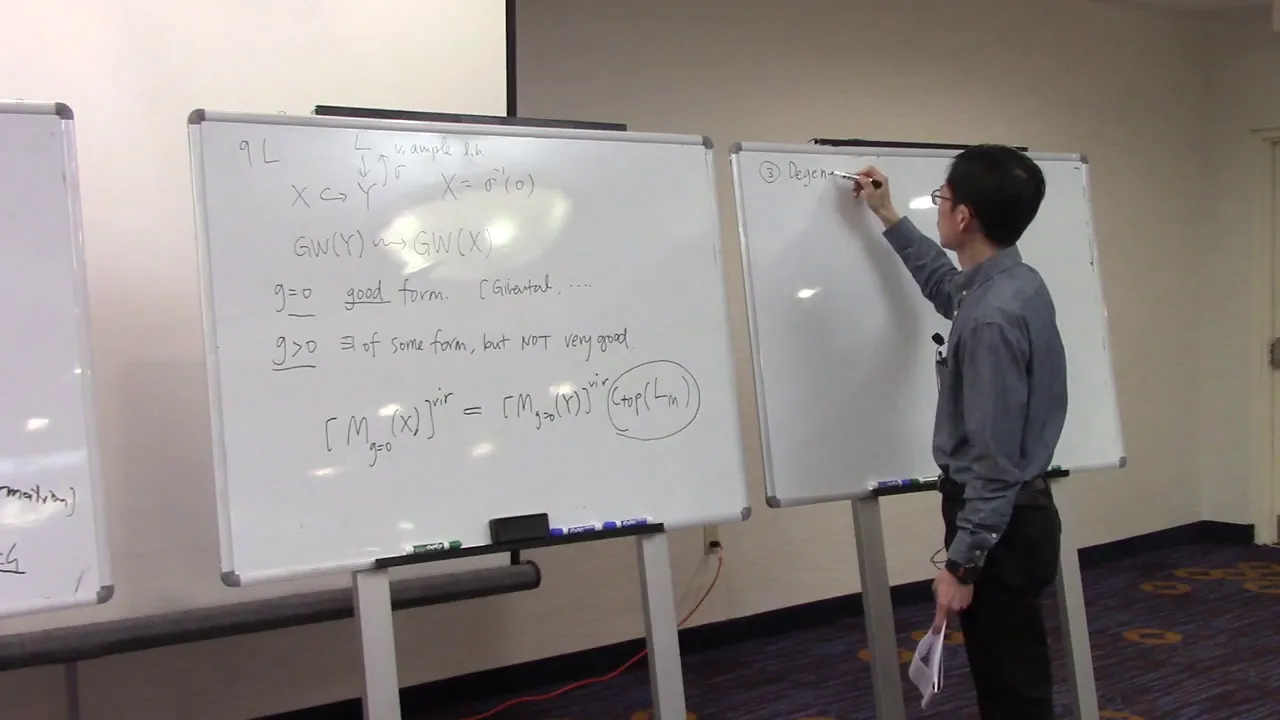 q L
L v. ample l.b.
↓↑ σ
X ↪ Y X = σ⁻¹(0)
GW(Y) ⇝ GW(X)
g=0 good form. [Givental, ....
g>0 ∃ of some form, but NOT very good.
[M_{g=0}(X)]^{vir} = [M_{g=0}(Y)]^{vir} C_{top}(L_M)
③ Degen